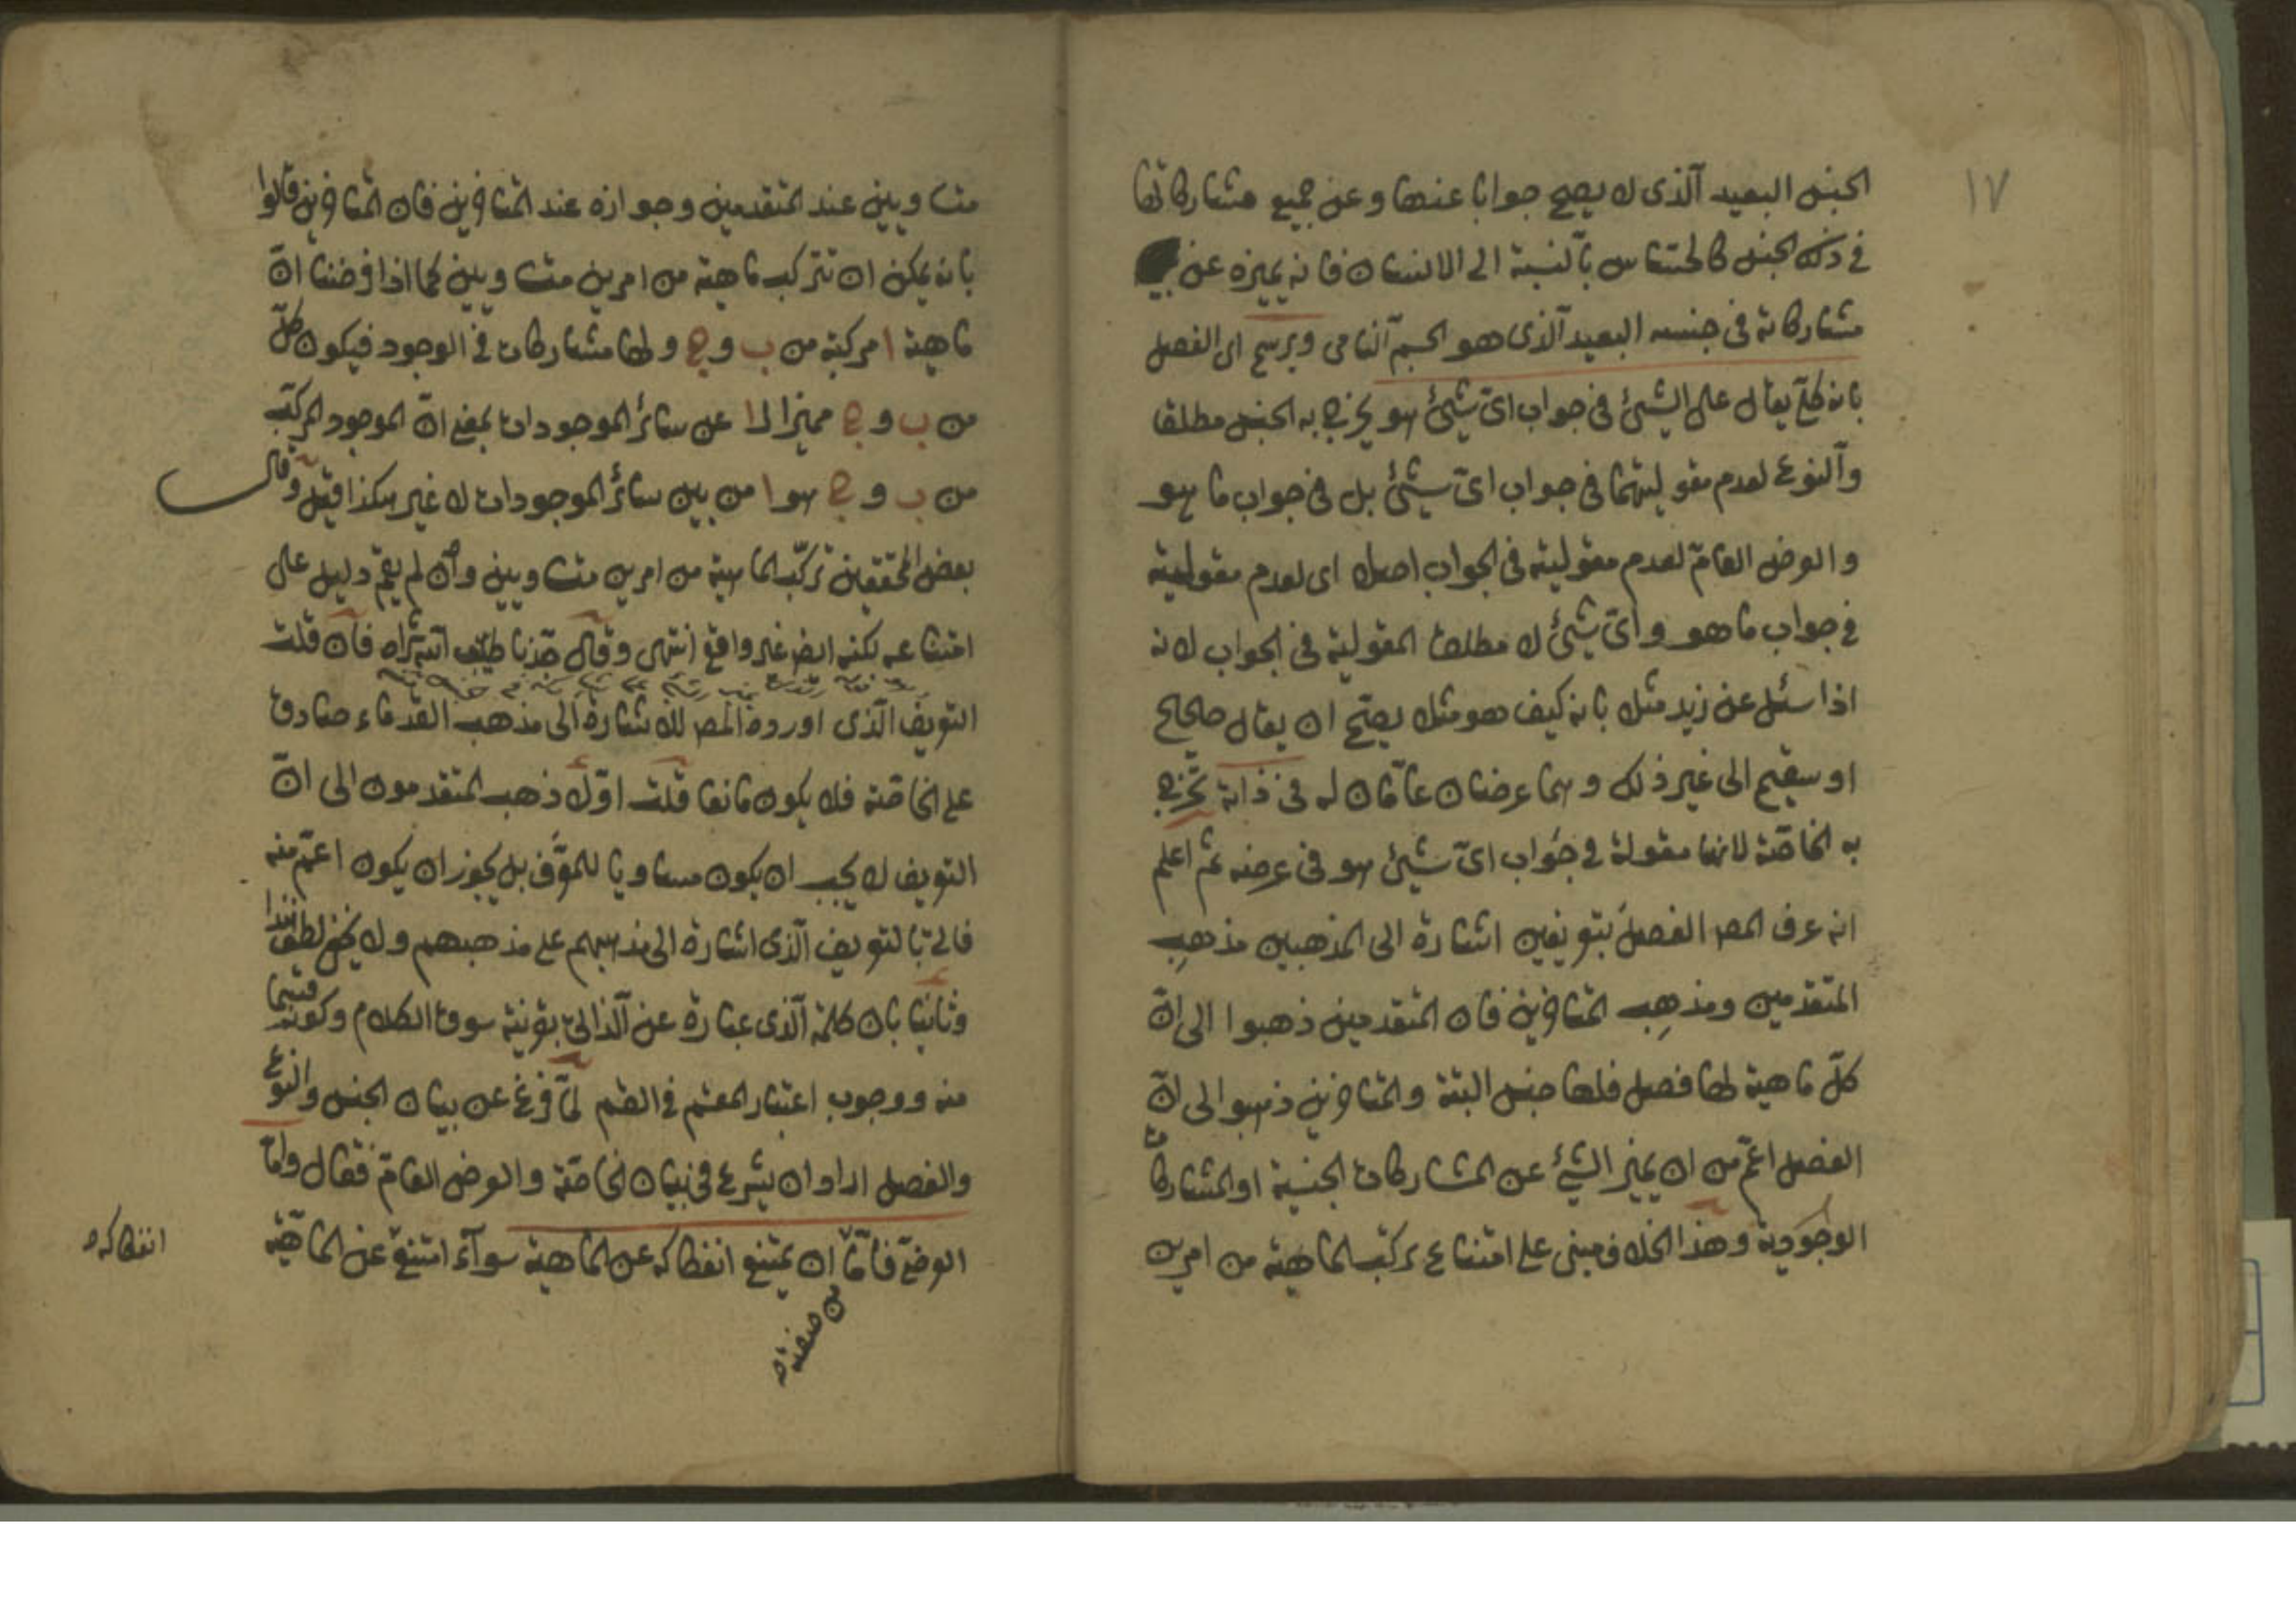 ١٧
الجنس البعيد الذى لا يصح جوابا عنها وعن جميع مشاركاتها
فى ذلك الجنس كالحساس بالنسبة الى الانسان فانه يميزه عن
مشاركاته فى جنسه البعيد الذى هو الجسم النامى ويرسم اى الفصل
بانه كلى يقال على الشئ فى جواب اى شئ هو يخرج به الجنس مطلقا
والنوع لعدم مقوليتهما فى جواب اى شئ بل فى جواب ما هو
والعرض العام لعدم مقوليته فى الجواب اصلا اى لعدم مقوليته
فى جواب ما هو واى شئ لا مطلق المقولية فى الجواب لانه
اذا سئل عن زيد مثلا بانه كيف هو مثلا يصح ان يقال صحاح
او سقيم الى غير ذلك وهما عرضان عامان له فى ذاته تخرج
به الخاصة لانها مقولة فى جواب اى شئ هو فى عرضه ثم اعلم
انه عرف المص الفصل بتعريفين اشارة الى المذهبين مذهب
المتقدمين ومذهب المتاخرين فان المتقدمين ذهبوا الى ان
كل ماهية لها فصل فلها جنس البتة والمتاخرين ذهبوا الى ان
الفصل اعم من ان يميز الشئ عن المشاركات الجنسية او المشاركات
الوجودية وهذا الخلاف مبنى على امتناع تركب الماهية من امرين
متساويين عند المتقدمين وجوازه عند المتاخرين فان المتاخرين قالوا
بانه يمكن ان تتركب ماهية من امرين متساويين كما اذا فرضنا ان
ماهية ا مركبة من ب و ج ولها مشاركات فى الوجود فيكون كل
من ب و ج مميزا لـ ا عن سائر الموجودات بمعنى ان الموجود المركب
من ب و ج هو ا من بين سائر الموجودات لا غير هكذا قيل وقال
بعض المحققين تركب الماهية من امرين متساويين وان لم يقم دليل على
امتناعه لكنه ايضا غير واقع انتهى وقال جدنا طيب الله ثراه فان قلت
التعريف الذى اورده المص للاشارة الى مذهب القدماء صادق
على الخاصة فلا يكون مانعا قلت اولا ذهب المتقدمون الى ان
التعريف لا يجب ان يكون مساويا للمعرف بل يجوز ان يكون اعم منه
فاتى بالتعريف الذى اشارة الى مذهبهم على مذهبهم ولا يخفى لطف هذا
وثانيا بان كلمة الذى عبارة عن الذاتى بقرينة سوق الكلام وكونه قسيما
منه ووجوب اعتبار المقسم فى القسم لما فرغ عن بيان الجنس والنوع
والفصل اراد ان يشرع فى بيان الخاصة والعرض العام فقال واما
العرضى فاما ان يمتنع انفكاكه عن الماهية سواء امتنع عن الماهية
من صنفته
انفكاكه